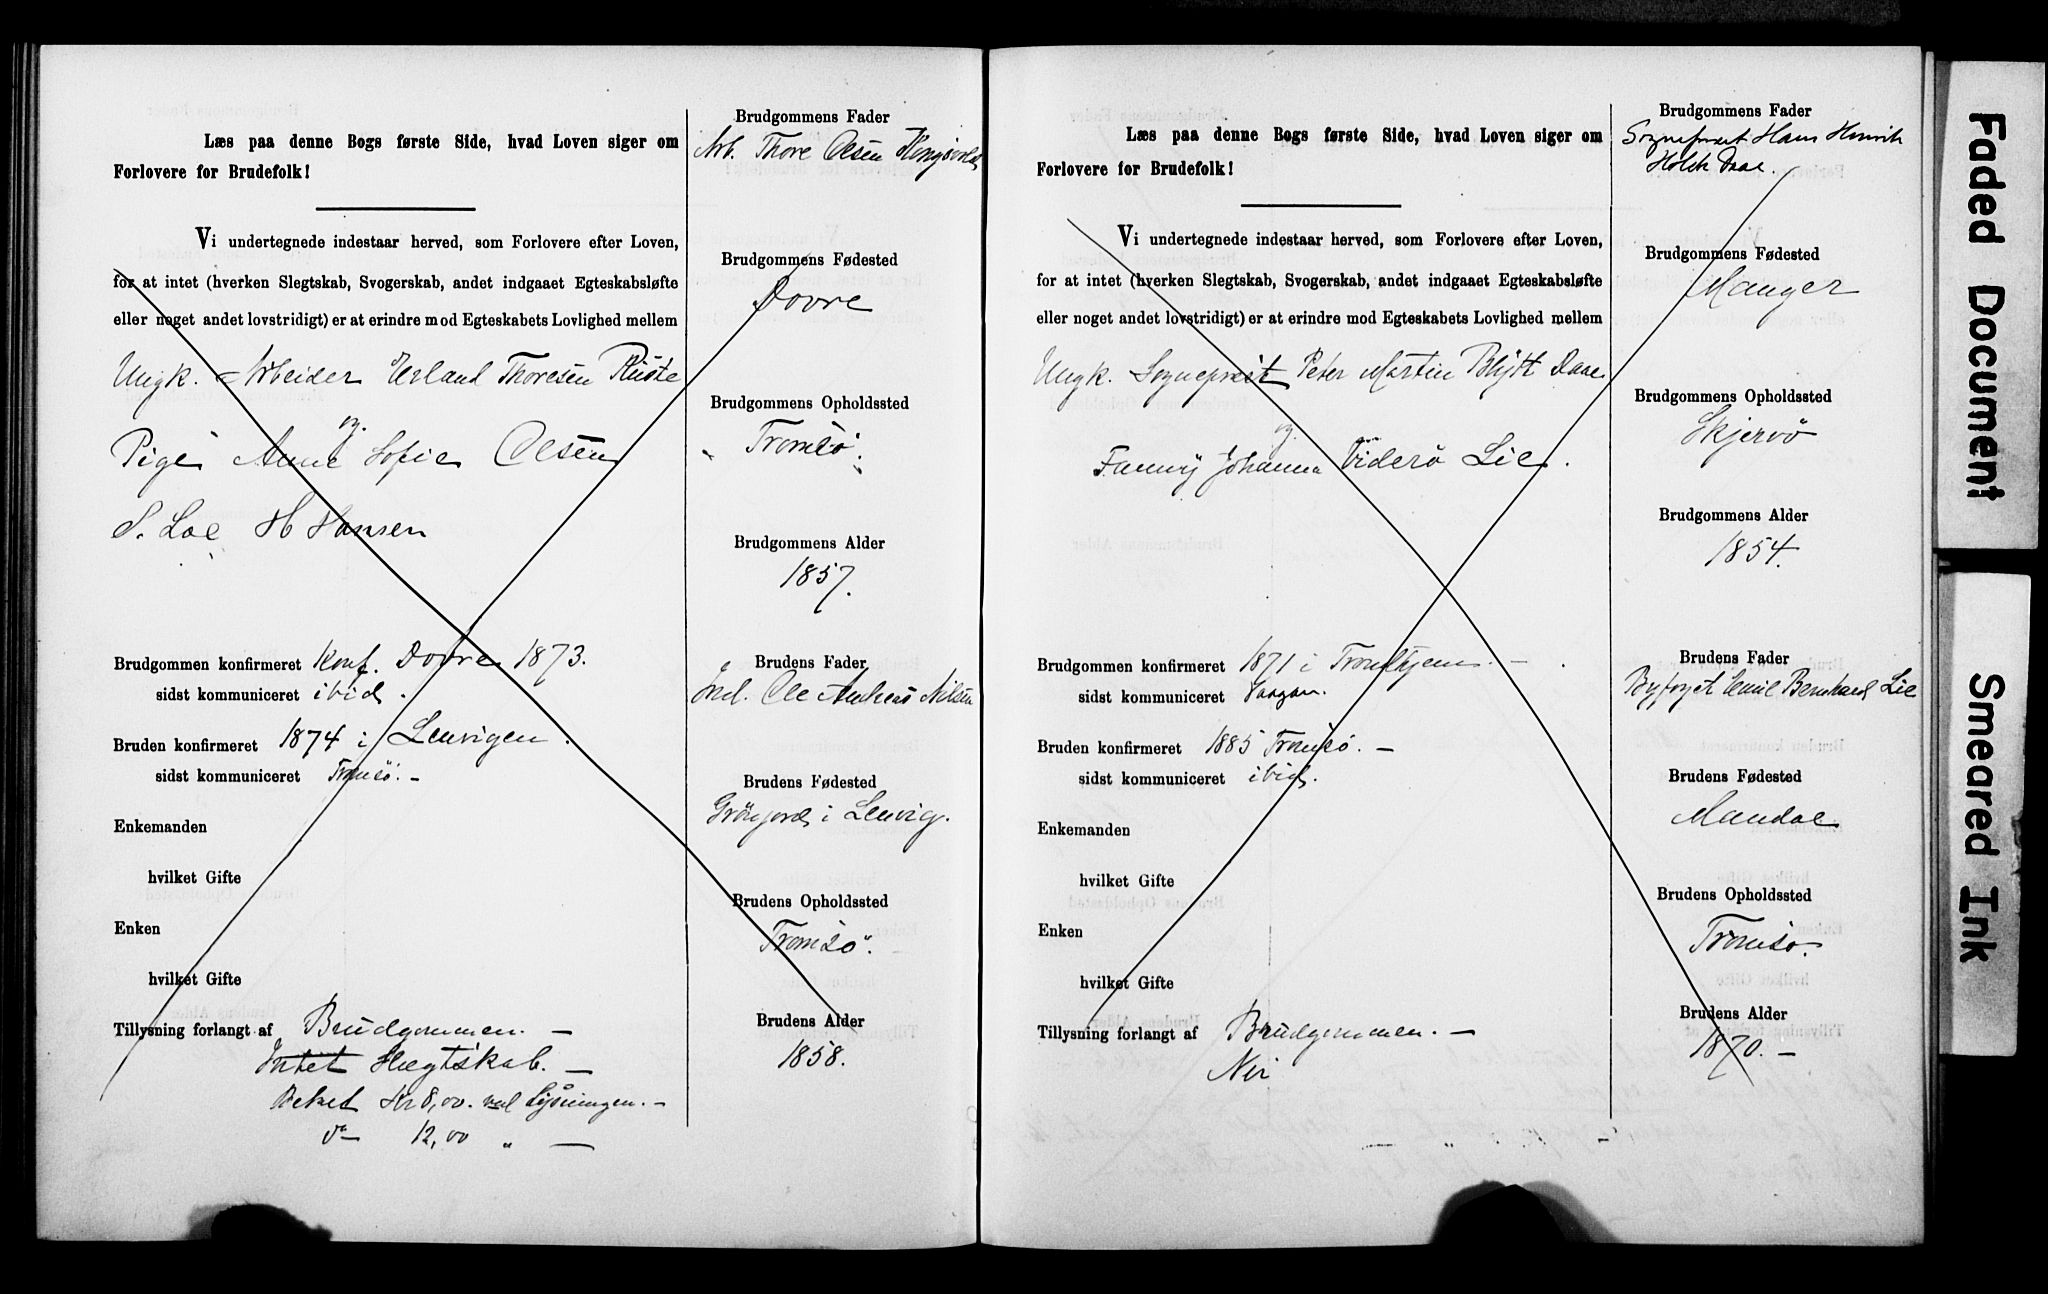 Læs paa denne Bogs første Side, hvad Loven siger om
Forlovere for Brudefolk!
Vi undertegnede indestaar herved, som Forlovere efter Loven,
for at intet (hverken Slegtskab, Svogerskab, andet indgaaet Egteskabsløfte
eller noget andet lovstridigt) er at erindre mod Egteskabets Lovlighed mellem
Ungk. Arbeider Erland Thoresen Ruste
og
Pige Anne Sofie Olsen
S. Lae H Hansen
Brudgommen konfirmeret Konf. Dovre 1873.
sidst kommuniceret ibid.
Bruden konfirmeret 1874 i Lenvigen.
sidst kommuniceret Tromsö. –
Enkemanden
hvilket Gifte
Enken
hvilket Gifte
Tillysning forlangt af Brudgommen. –
Intet Slegtskab. –
Betalt Kr 8,00. ved Lysningen. –
do 12,00 " –
Brudgommens Fader
Arb. Thore Olsen Kongsvold
Brudgommens Fødested
Dovre
Brudgommens Opholdssted
Tromsö.
Brudgommens Alder
1857.
Brudens Fader
Ind. Ole Andreas Nilsen
Brudens Fødested
Grönjord i Lenvig.
Brudens Opholdssted
Tromsö.
Brudens Alder
1858.
Læs paa denne Bogs første Side, hvad Loven siger om
Forlovere for Brudefolk!
Vi undertegnede indestaar herved, som Forlovere efter Loven,
for at intet (hverken Slegtskab, Svogerskab, andet indgaaet Egteskabsløfte
eller noget andet lovstridigt) er at erindre mod Egteskabets Lovlighed mellem
Ungk. Sogneprest Peter Martin Blÿtt Daae
og
Fanny Johanna Viderö Lie.
Brudgommen konfirmeret 1871 i Trondhjem. –
sidst kommuniceret Vaagan.
Bruden konfirmeret 1885 Tromsö. –
sidst kommuniceret ibid.
Enkemanden
hvilket Gifte
Enken
hvilket Gifte
Tillysning forlangt af Brudgommen. –
Nei
Brudgommens Fader
Sogneprest Hans Henrik
Holck Daae.
Brudgommens Fødested
Manger
Brudgommens Opholdssted
Skjervö
Brudgommens Alder
1854.
Brudens Fader
Byfoget Emil Bernhard Lie
Brudens Fødested
Mandal
Brudens Opholdssted
Tromsö.
Brudens Alder
1870. –
Faded Document
Smeared Ink